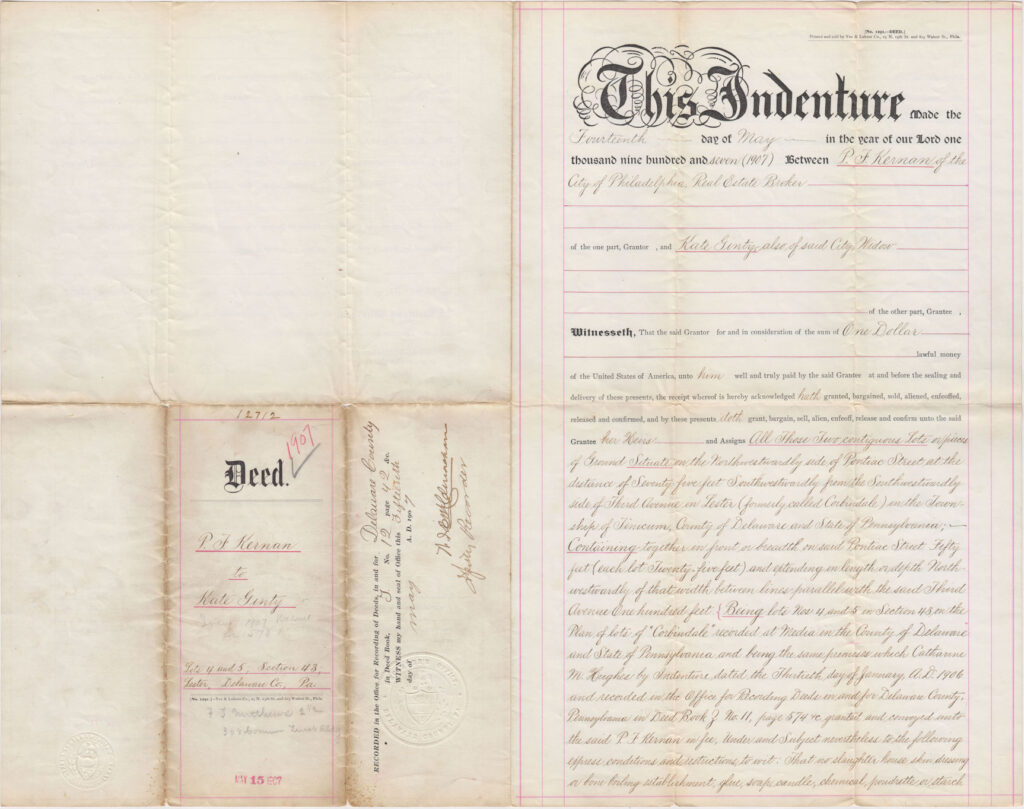 12712
1907
Deed.
P. F. Kernan
to
Kate Ginty
Lots 4 and 5, Section 43,
Lester, Delaware Co., Pa.
(No. 1291.)—Yeo & Lukens Co., 23 N. 13th St. and 613 Walnut St., Phila.
MAY 15 1907
RECORDED in the Office for Recording of Deeds, in and for Delaware County
in Deed Book, No. 12 page 42 &c.
WITNESS my hand and seal of Office this Fifteenth
day of May A. D. 1907
Recorder
[No. 1291.—DEED.]
Printed and sold by Yeo & Lukens Co., 23 N. 13th St. and 613 Walnut St., Phila.
This Indenture Made the
Fourteenth day of May in the year of our Lord one
thousand nine hundred and seven (1907) Between P. F. Kernan of the
City of Philadelphia, Real Estate Broker
of the one part, Grantor , and Kate Ginty, also of said City, Widow
of the other part, Grantee ,
Witnesseth, That the said Grantor for and in consideration of the sum of One Dollar
lawful money
of the United States of America, unto him well and truly paid by the said Grantee at and before the sealing and
delivery of these presents, the receipt whereof is hereby acknowledged hath granted, bargained, sold, aliened, enfeoffed,
released and confirmed, and by these presents doth grant, bargain, sell, alien, enfeoff, release and confirm unto the said
Grantee her Heirs and Assigns All Those Two contiguous Lots or pieces
of Ground Situate on the Northwestwardly side of Pontiac Street at the
distance of Seventy five feet Southwestwardly from the Southwestwardly
side of Third Avenue in Lester (formerly called Corbindale) in the Town-
ship of Tinicum, County of Delaware and State of Pennsylvania;
Containing together in front or breadth on said Pontiac Street Fifty
feet (each lot Twenty-five feet) and extending in length or depth North-
westwardly of that width between lines parallel with the said Third
Avenue One hundred feet (Being lots Nos 4 and 5 in Section 43 on the
Plan of lots of "Corbindale" recorded at Media in the County of Delaware
and State of Pennsylvania and being the same premises which Catharine
M. Hughes by Indenture dated the Thirtieth day of January, A.D. 1906
and recorded in the Office for Recording Deeds in and for Delaware County,
Pennsylvania in Deed Book No. 11, page 574 &c. granted and conveyed unto
the said P. F. Kernan in fee, Under and Subject nevertheless to the following
express conditions and restrictions, to wit: That no slaughter house skin dressing
or bone boiling establishment, glue, soap, candle, chemical, poudrette or starch